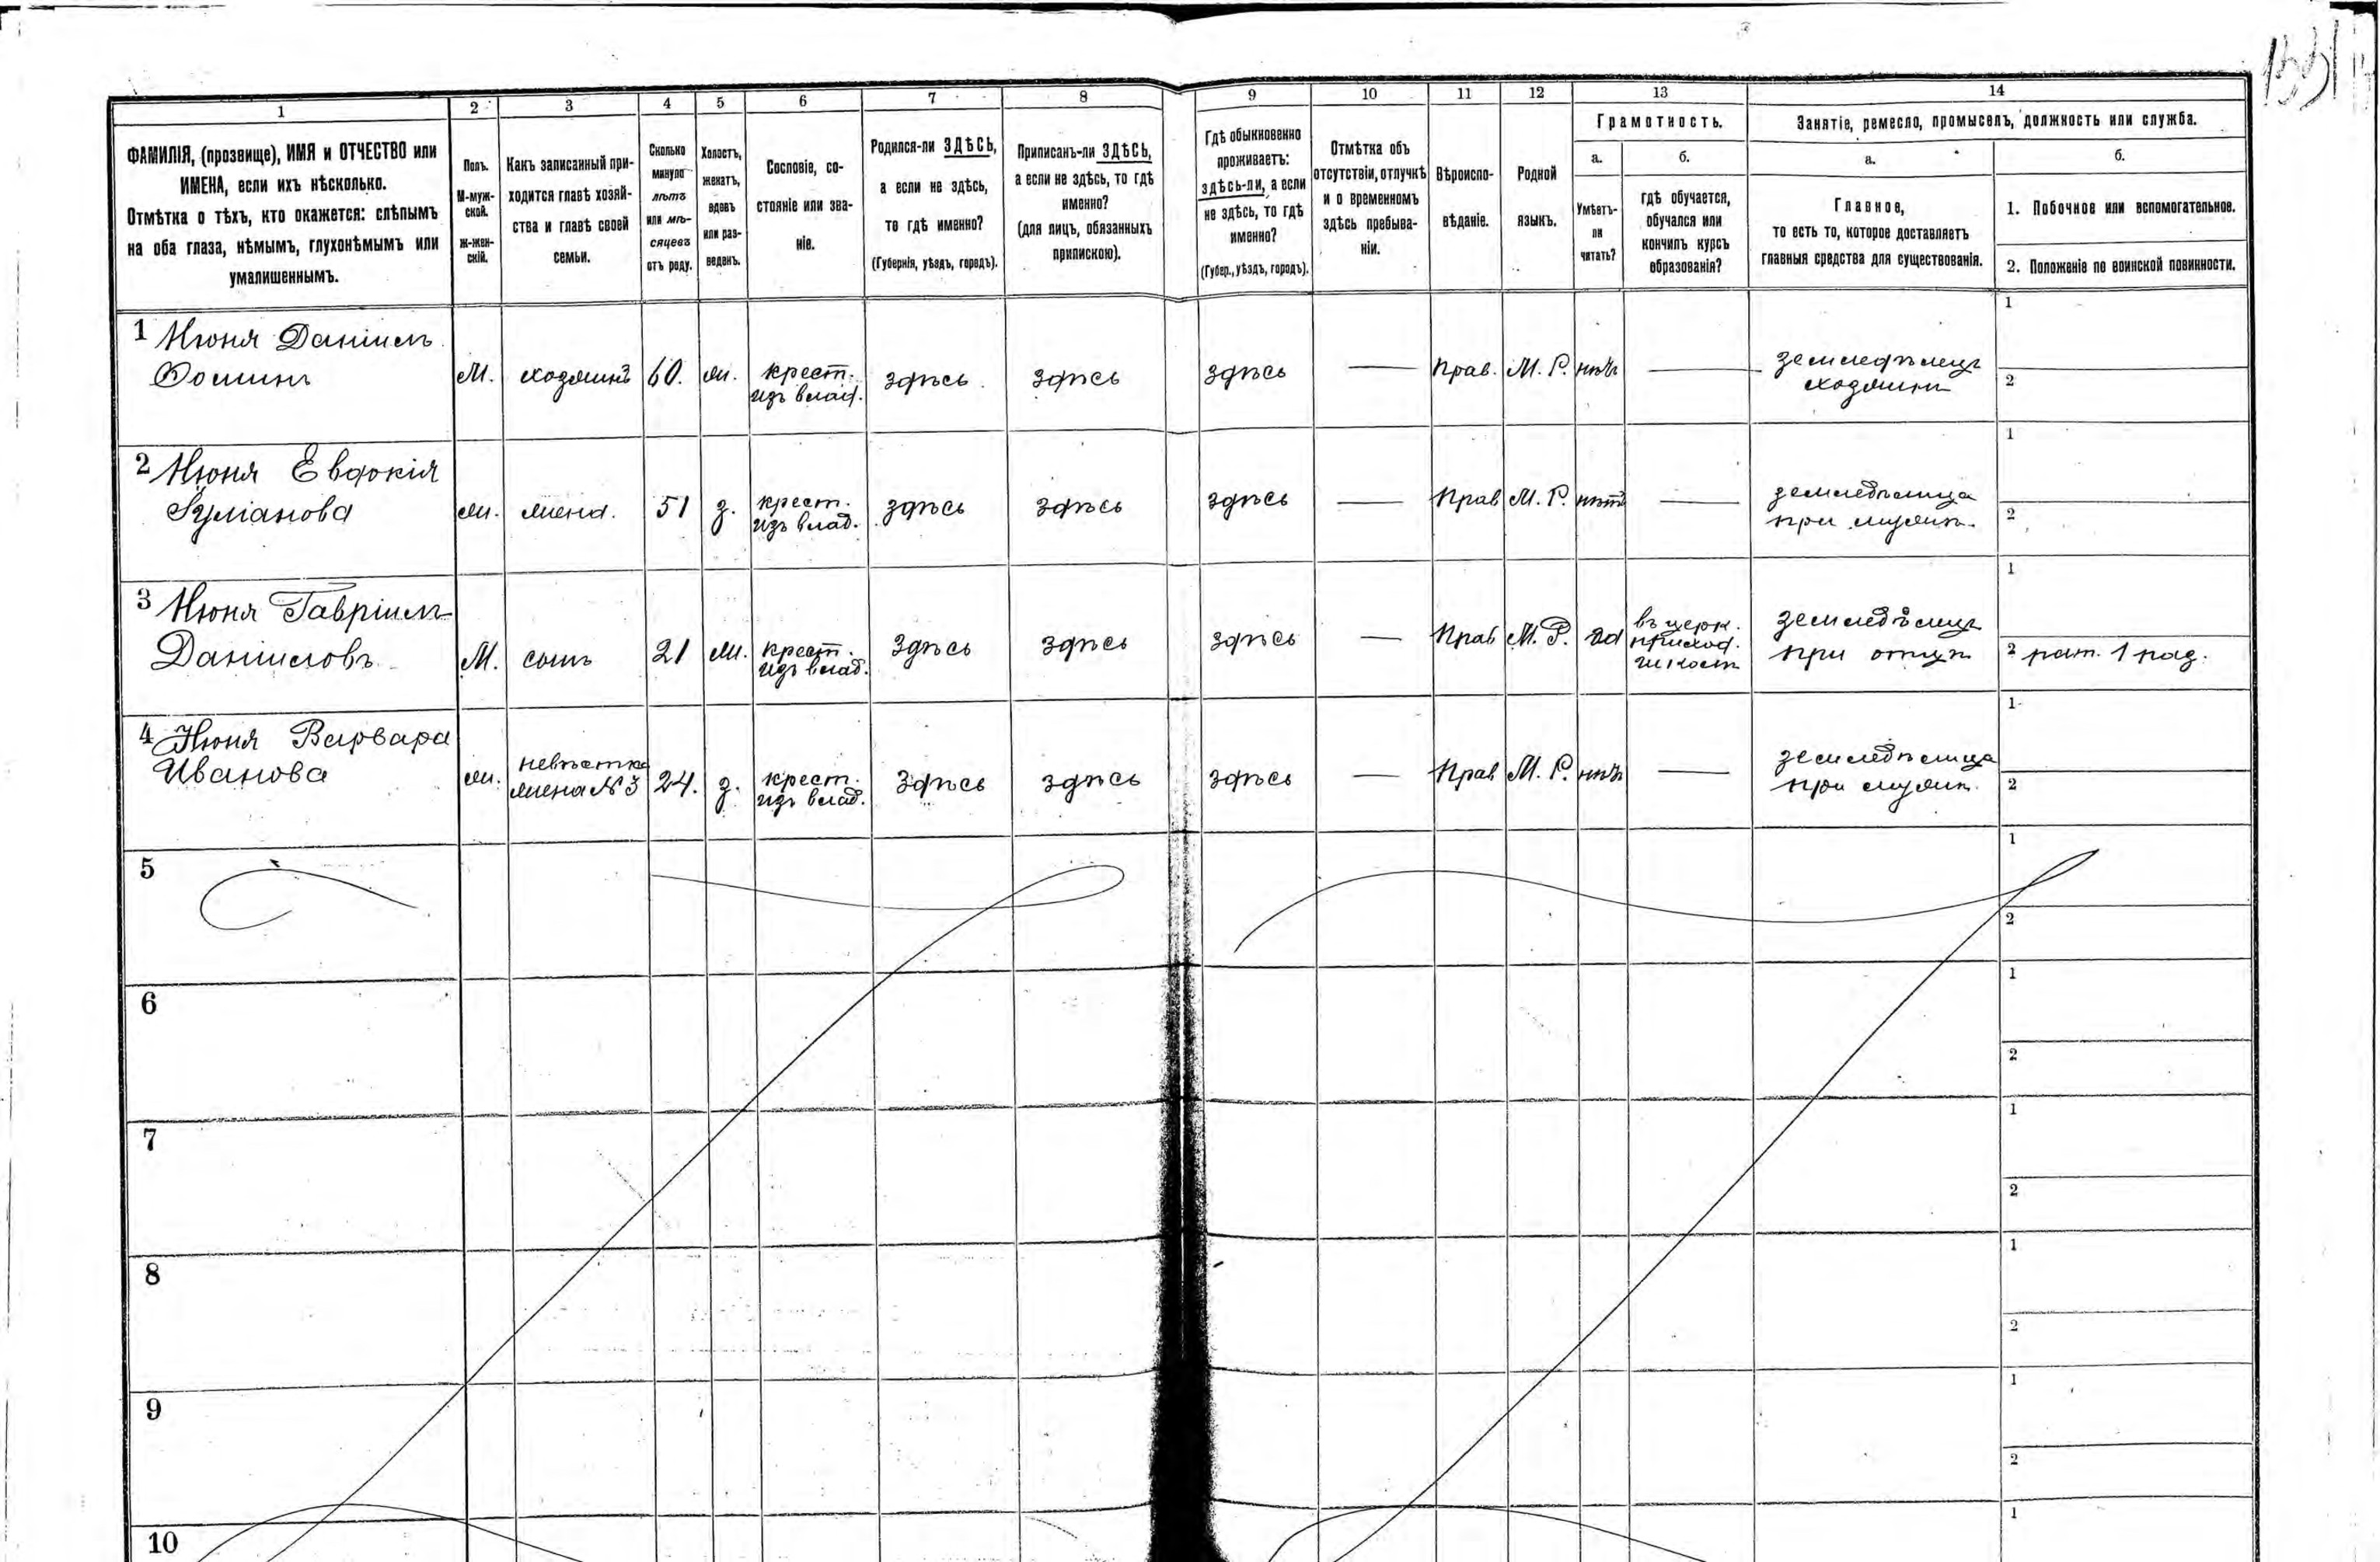 1 2 3 4 5 6 7 8 9 10 11 12 13 14
ФАМИЛІЯ, (прозвище), ИМЯ и ОТЧЕСТВО или
ИМЕНА, если ихъ нѣсколько.
Отмѣтка о тѣхъ, кто окажется: слѣпымъ
на оба глаза, нѣмымъ, глухонѣмымъ или
умалишеннымъ.
Полъ.
М-муж-
ской.
Ж-жен-
скій.
Какъ записанный при-
ходится главѣ хозяй-
ства и главѣ своей
семьи.
Сколько
минуло
лѣтъ
или мѣ-
сяцевъ
отъ роду.
Холостъ,
женатъ,
вдовъ
или раз-
веденъ.
Сословіе, со-
стояніе или зва-
ніе.
Родился-ли ЗДѢСЬ,
а если не здѣсь,
то гдѣ именно?
(Губернія, уѣздъ, городъ).
Приписанъ-ли ЗДѢСЬ,
а если не здѣсь, то гдѣ
именно?
(для лицъ, обязанныхъ
припискою).
Гдѣ обыкновенно
проживаетъ:
здѣсь-ли, а если
не здѣсь, то гдѣ
именно?
(Губер., уѣздъ, городъ).
Отмѣтка объ
отсутствіи, отлучкѣ
и о временномъ
здѣсь пребыва-
ніи.
Вѣроиспо-
вѣданіе.
Родной
языкъ.
Грамотность.
а.
Умѣетъ-
ли
читать?
б.
гдѣ обучается,
обучался или
кончилъ курсъ
образованія?
Занятіе, ремесло, промыселъ, должность или служба.
а.
Главное,
то есть то, которое доставляетъ
главныя средства для существованія.
б.
1. Побочное или вспомогательное.
2. Положеніе по воинской повинности.
1 Нюня Даніилъ
Фоминъ
М.
хозяинъ
60.
ж.
крест.
изъ влад.
здѣсь
здѣсь
здѣсь
—
Прав.
М. Р.
нѣтъ
—
земледѣлецъ
хозяинъ
1
2
2 Нюня Евдокія
Гуліанова
ж.
жена.
51
з.
крест.
изъ влад.
здѣсь
здѣсь
здѣсь
—
Прав
М. Р.
нѣтъ
—
земледѣлица
при мужѣ.
1
2
3 Нюня Гавріилъ
Даніиловъ
М.
сынъ
21
ж.
крест.
изъ влад.
здѣсь
здѣсь
здѣсь
—
Прав
М. Р.
да
въ церк.
приход.
школѣ
земледѣлецъ
при отцѣ
1
2 рат. 1 раз.
4 Нюня Варвара
Иванова
ж.
невѣстка
жена №3
24.
з.
крест.
изъ влад.
здѣсь
здѣсь
здѣсь
—
Прав
М. Р.
нѣтъ
—
земледѣлица
при мужѣ.
1
2
5
1
2
6
1
2
7
1
2
8
1
2
9
1
2
10
1